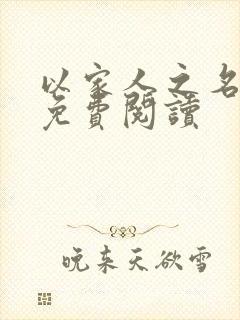 以家人之名
免費閱讀
晚来天欲雪